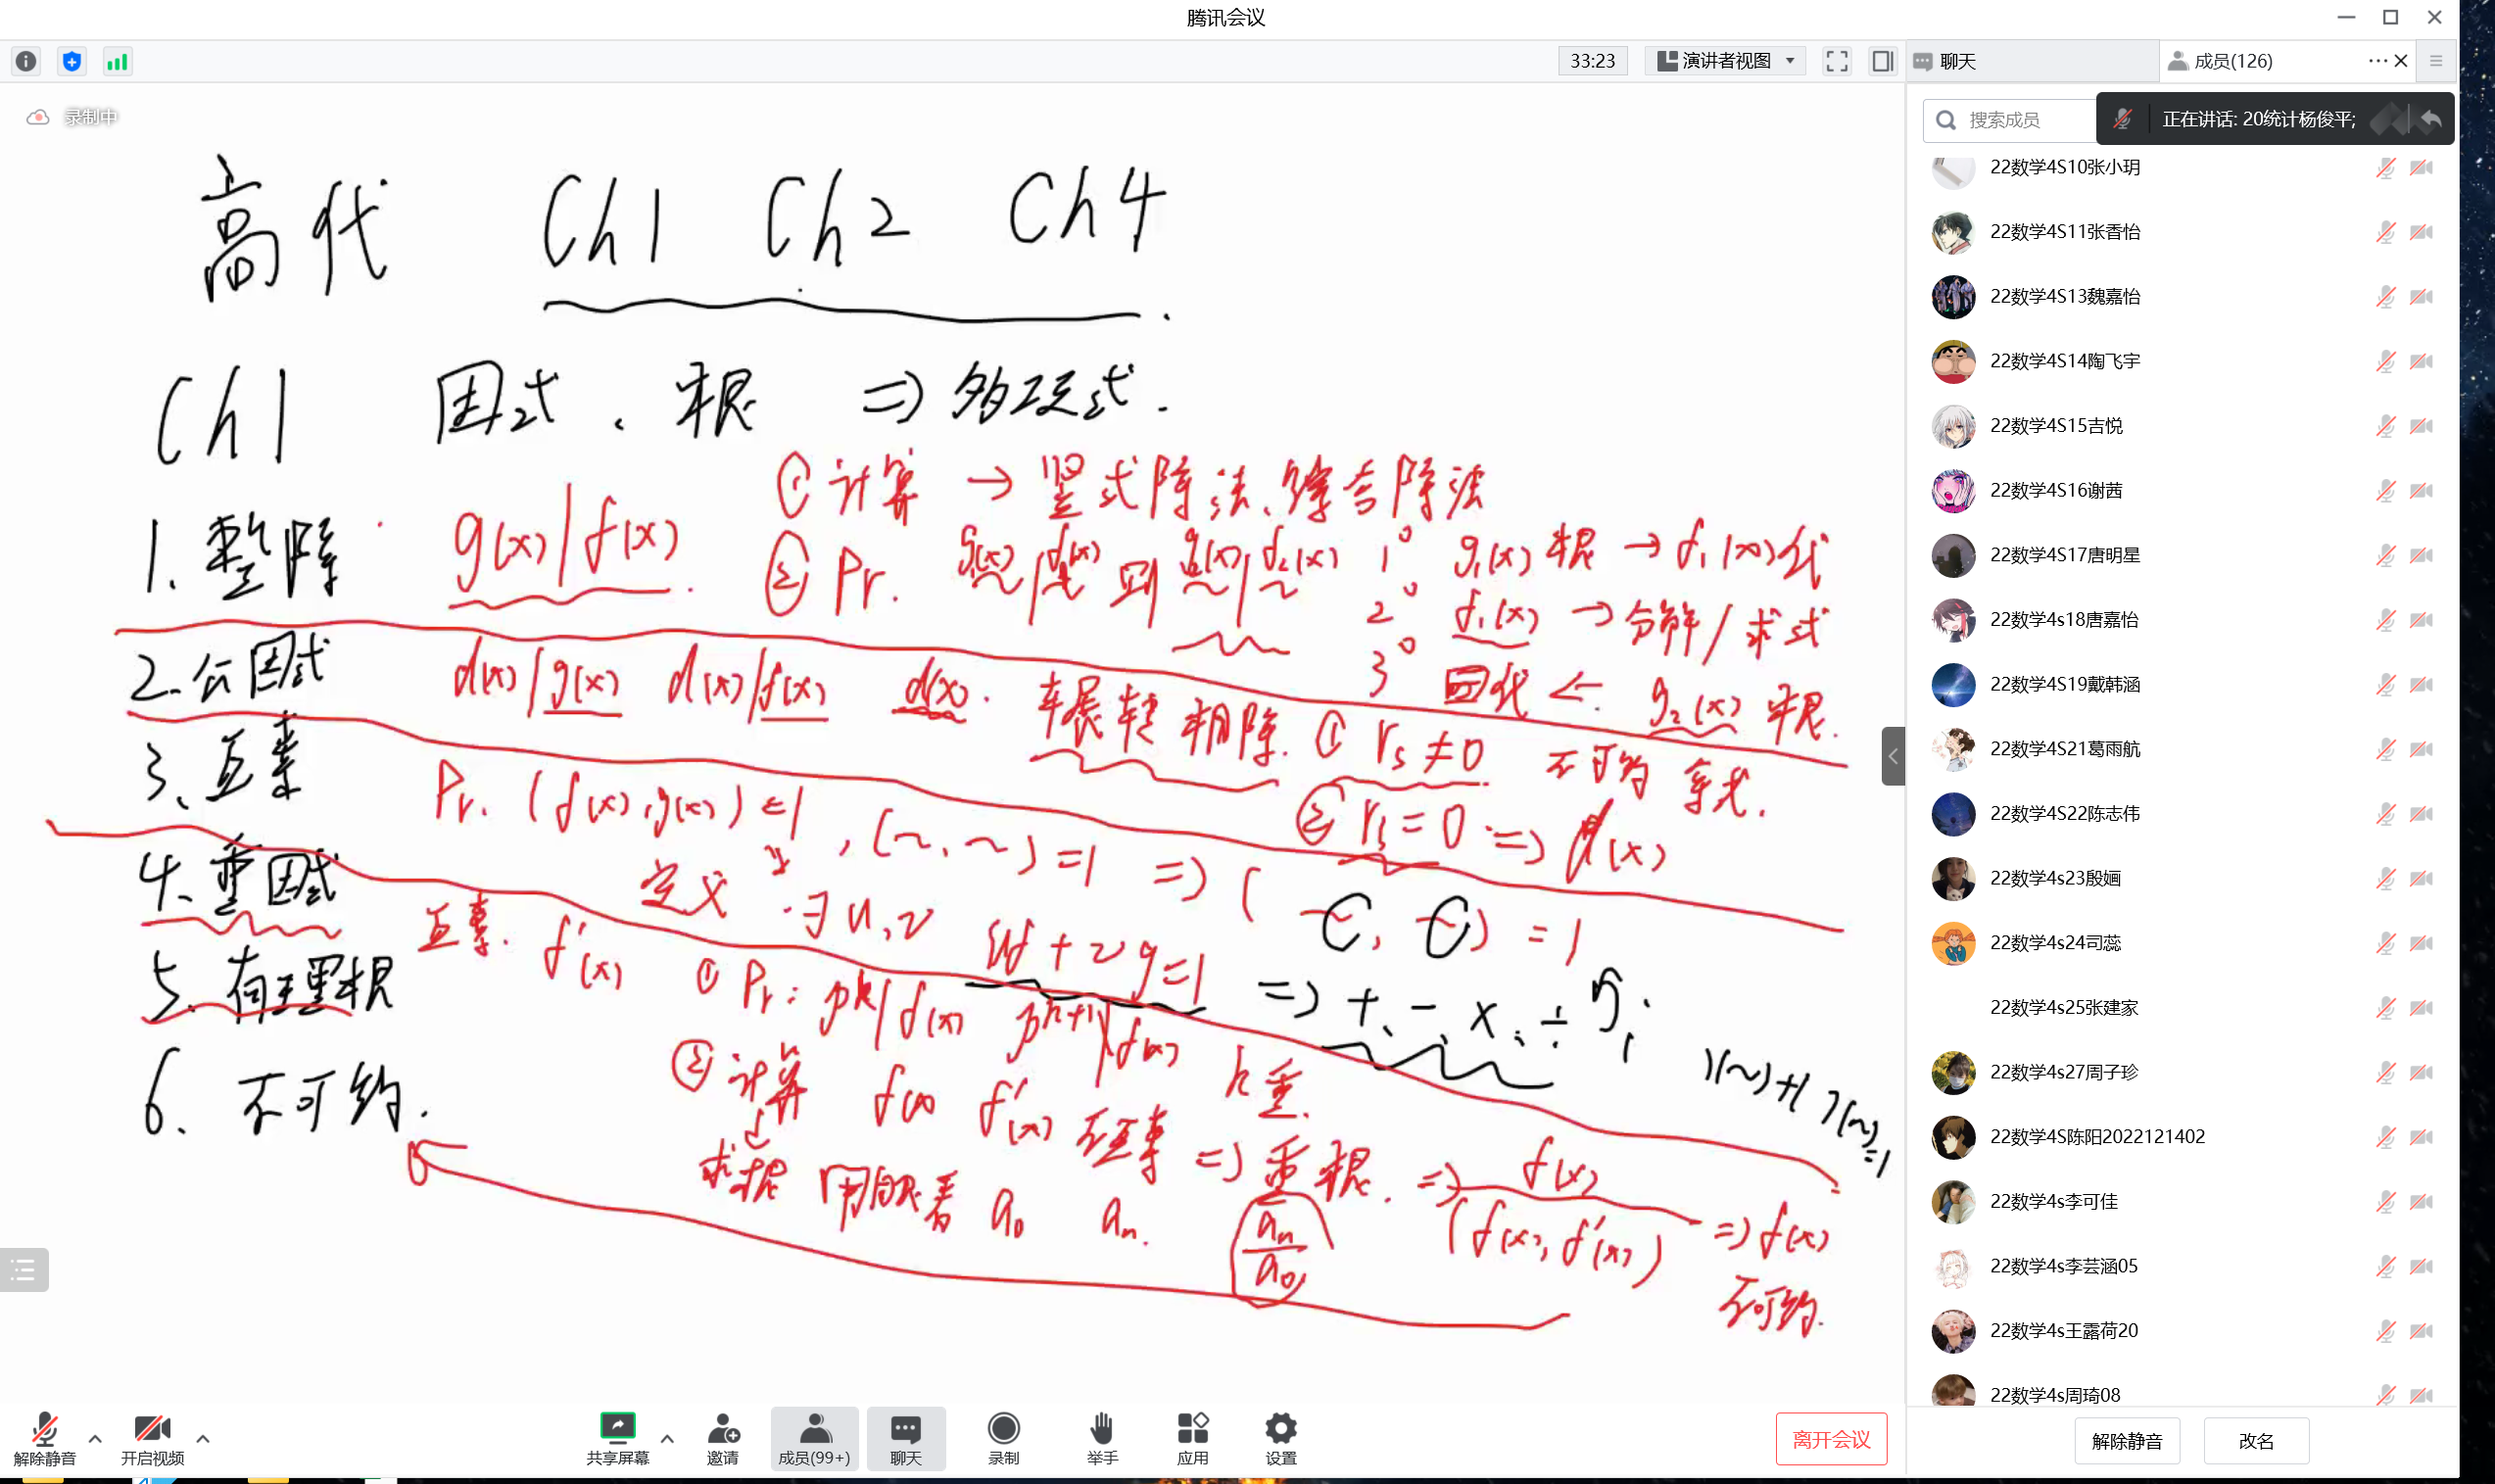 腾讯会议
33:23
演讲者视图
聊天
成员(126)
录制中
搜索成员
正在讲话: 20统计杨俊平;
高代 Ch1 Ch2 Ch4
Ch1 因式、根 => 多项式.
① 计算 → 竖式除法、综合除法
1、整除 g(x)/f(x)
② Pr. g₁(x)/f₁(x) 则 g₂(x)/f₂(x)
1° g₁(x) 根 → f₁(x)代
2° f₁(x) → 分解/求式
3° 回代 ← g₂(x) 根.
2.公因式 d(x)/g(x) d(x)/f(x) d(x). 辗转相除. ① rs≠0 不可约
② rs=0 => d(x)
3、互素 Pr. (f(x),g(x))=1, (~,~)=1 => ( , )=1
定义 ∃u,v uf+vg=1 => +、-、×、÷
4、重因式 互素. f'(x) ① Pr: pᵏ/f(x) pᵏ⁺¹∤f(x) k重.
② 计算 f(x) f'(x) 不互素 => 重根. => f(x)/(f(x),f'(x)) => f(x)
不可约.
5.有理根
求根 a₀ aₙ. aₙ/a₀
6、不可约.
22数学4S10张小玥
22数学4S11张香怡
22数学4S13魏嘉怡
22数学4S14陶飞宇
22数学4S15吉悦
22数学4S16谢茜
22数学4S17唐明星
22数学4s18唐嘉怡
22数学4S19戴韩涵
22数学4S21葛雨航
22数学4S22陈志伟
22数学4s23殷婳
22数学4s24司蕊
22数学4s25张建家
22数学4s27周子珍
22数学4S陈阳2022121402
22数学4s李可佳
22数学4s李芸涵05
22数学4s王露荷20
22数学4s周琦08
解除静音
开启视频
共享屏幕
邀请
成员(99+)
聊天
录制
举手
应用
设置
离开会议
解除静音
改名